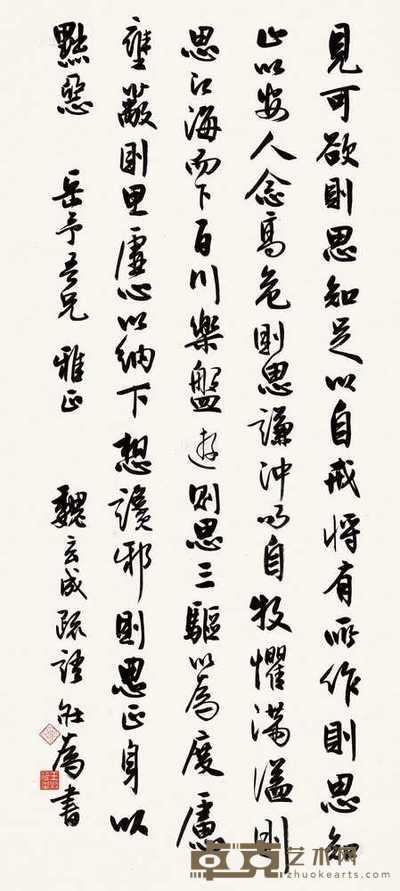 見可欲則思知足以自戒將有所作則思知
止以安人念高危則思謙沖以自牧懼滿溢則
思江海而下百川樂盤遊則思三驅以為度慮
壅蔽則思虛心以納下想讒邪則思正身以
黜惡 岳予吾兄 雅正 魏玄成疏語 壯為書
卓克艺术网
zhuokearts.com